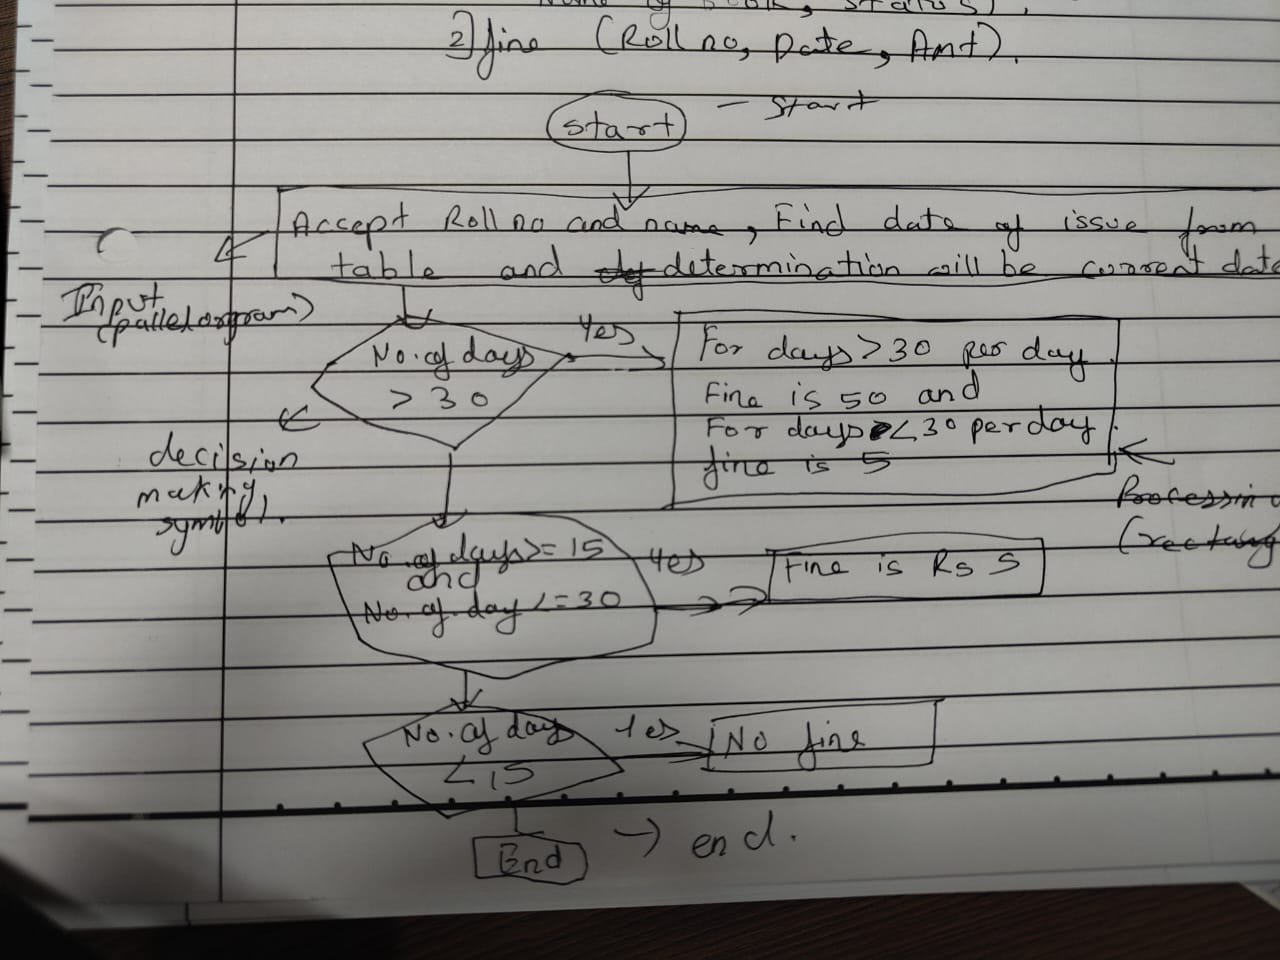 2) fine (Roll no, Date, Amt).
start
- Start
Accept Roll no and name, Find date of issue from
table and determination will be current date
Input
(pallelorgram)
No. of days
> 30
Yes
For days > 30 per day
Fine is 50 and
For days < 30 per day.
fine is 5
decision
making
symbol.
Processin
(rectang
No. of days >= 15
and
No. of day <= 30
Yes
Fine is Rs 5
No. of day
< 15
Yes
No fine
End
→ end.